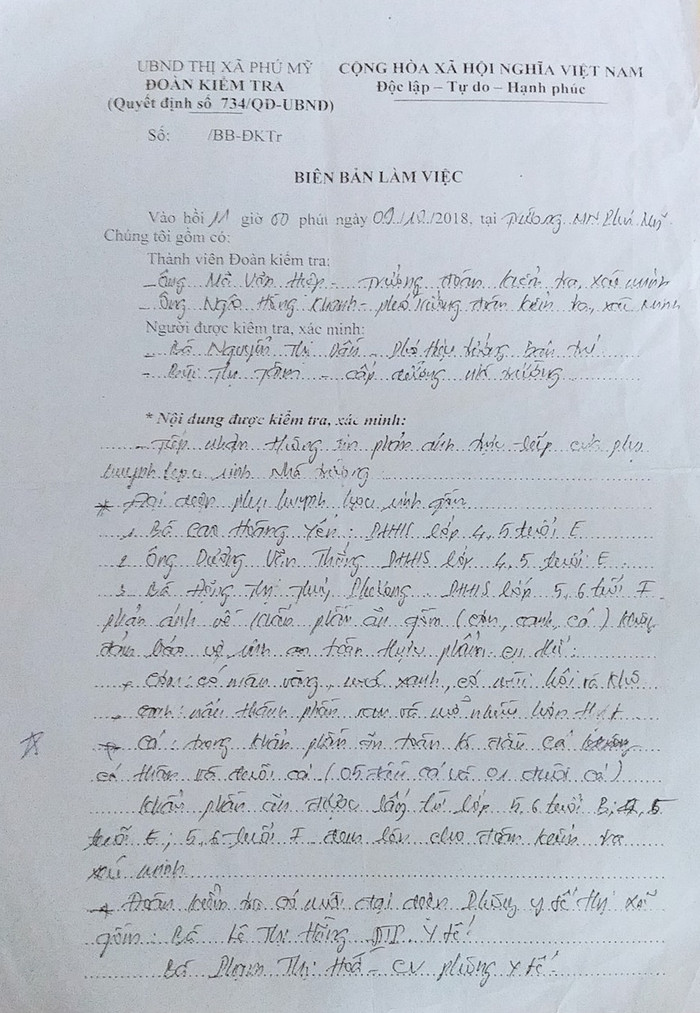 UBND THỊ XÃ PHÚ MỸ
ĐOÀN KIỂM TRA
(Quyết định số 734/QĐ-UBND)
Số: /BB-ĐKTr
CỘNG HÒA XÃ HỘI NGHĨA VIỆT NAM
Độc lập – Tự do – Hạnh phúc
BIÊN BẢN LÀM VIỆC
Vào hồi 11 giờ 00 phút ngày /2018, tại trường MN Phú Mỹ
Chúng tôi gồm có:
Thành viên Đoàn kiểm tra:
- Ông Văn Hiệp - Trưởng đoàn kiểm tra, xác minh
- Ông Ngô Hồng Khanh - phó trưởng đoàn kiểm tra, xác minh
Người được kiểm tra, xác minh:
- Bà Nguyễn Thị - Phó Hiệu trưởng Bán trú
- Thị - cấp dưỡng nhà trường
* Nội dung được kiểm tra, xác minh:
- Tiếp nhận thông tin phản ánh trực tiếp của phụ
huynh học sinh Nhà trường
* Đại diện phụ huynh học sinh gồm
1. Bà Cao Hoàng Yến: PHHS lớp 4,5 tuổi E
2. Ông Dương Văn Thắng PHHS lớp 4,5 tuổi E
3. Bà Đặng Thị Thuỳ Phương. PHHS lớp 5,6 tuổi
phản ánh về khẩu phần ăn gồm (cơm, canh, cá) không
đảm bảo vệ sinh an toàn thực phẩm cụ thể:
+ Cơm: có màu vàng, xanh, có mùi hôi và khô
+ canh: nấu thành phần
+ Cá: trong khẩu phần ăn toàn đầu cá không
có thân và đuôi cá (05 đầu cá và 01 đuôi cá)
Khẩu phần ăn được lấy từ lớp 5,6 tuổi
tuổi E; 5,6 tuổi đem lên cho đoàn kiểm tra
xác minh
* Đoàn kiểm tra có mời đại diện Phòng y tế thị xã
gồm: Bà Lê Thị Hằng Y tế
Bà Phạm Thị Hoà - CV phòng Y tế